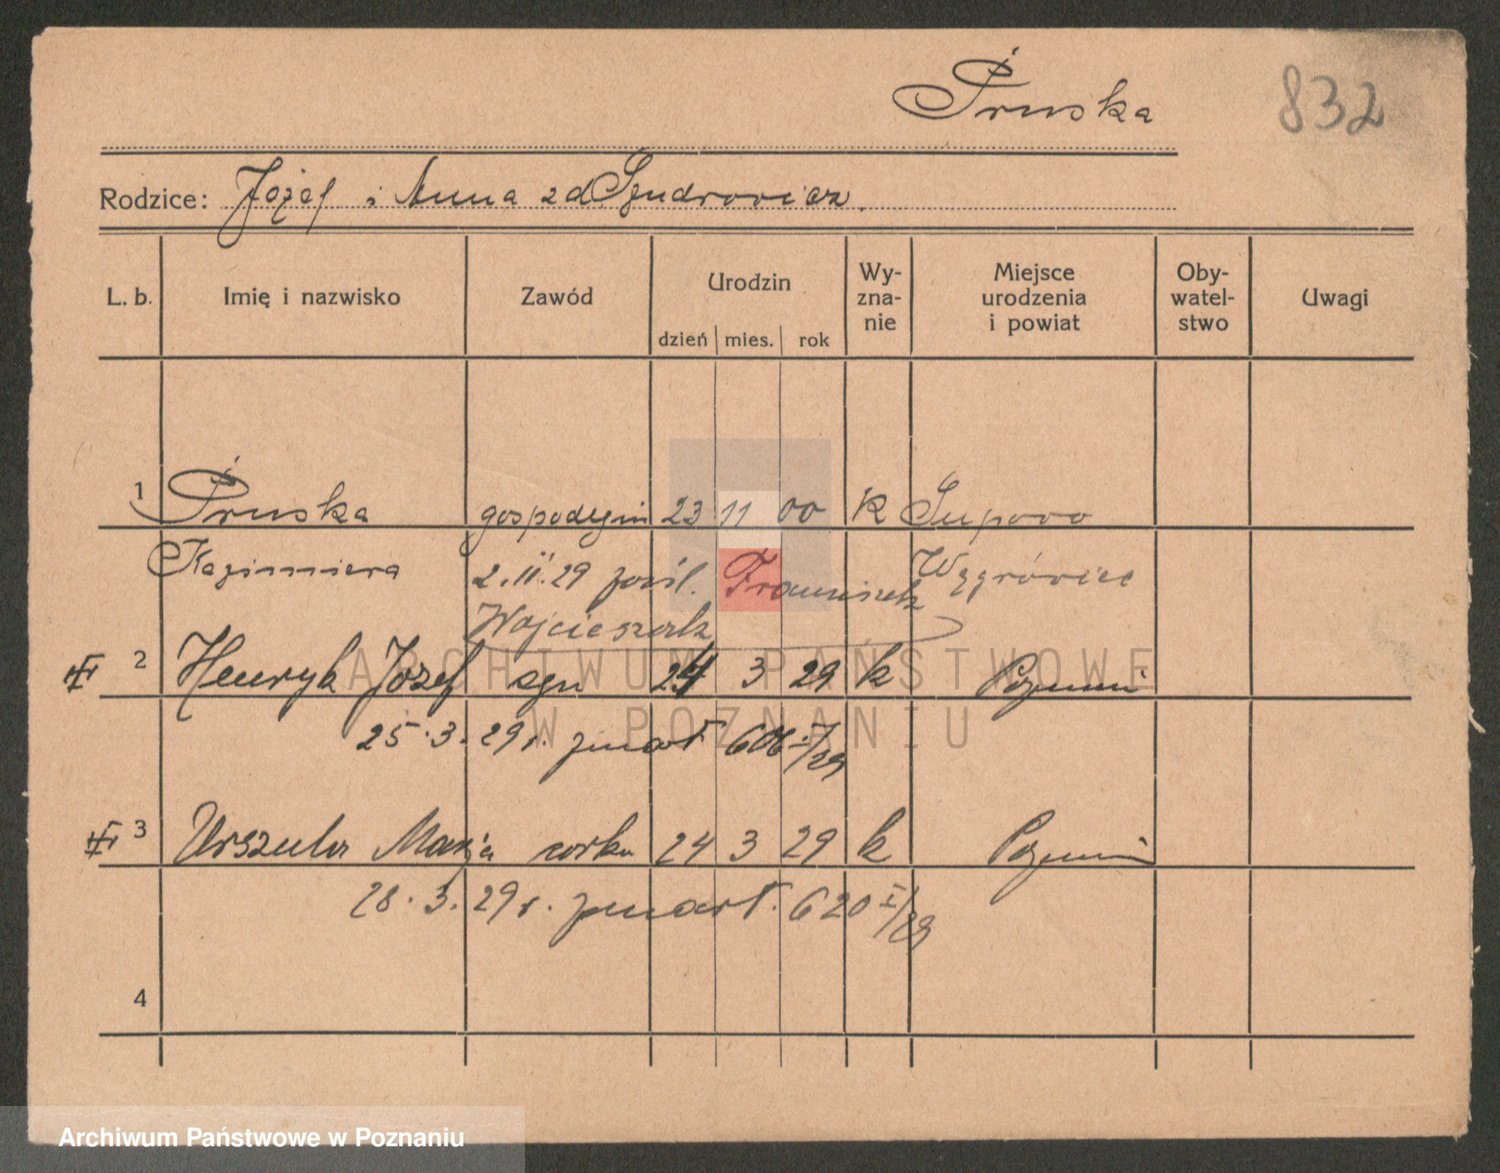 Pruska
832
Rodzice: Józef i Anna zd Szudrowicz.
L. b. Imię i nazwisko Zawód Urodzin dzień mies. rok Wy-zna-nie Miejsce urodzenia i powiat Oby-watel-stwo Uwagi
1 Pruska gospodyni 23 11 00 k
Kazimiera Wągrówiec
2. II. 29 pośl. Franciszek
Wojcieszak
2 Henryk Józef syn 24 3 29 k Poznań
25. 3. 29 r. zmarł 606 I/29
3 Urszula Marja corka 24 3 29 k Poznań
28. 3. 29 r. zmarł. 620 I/29
4
ARCHIWUM PAŃSTWOWE
W POZNANIU
Archiwum Państwowe w Poznaniu